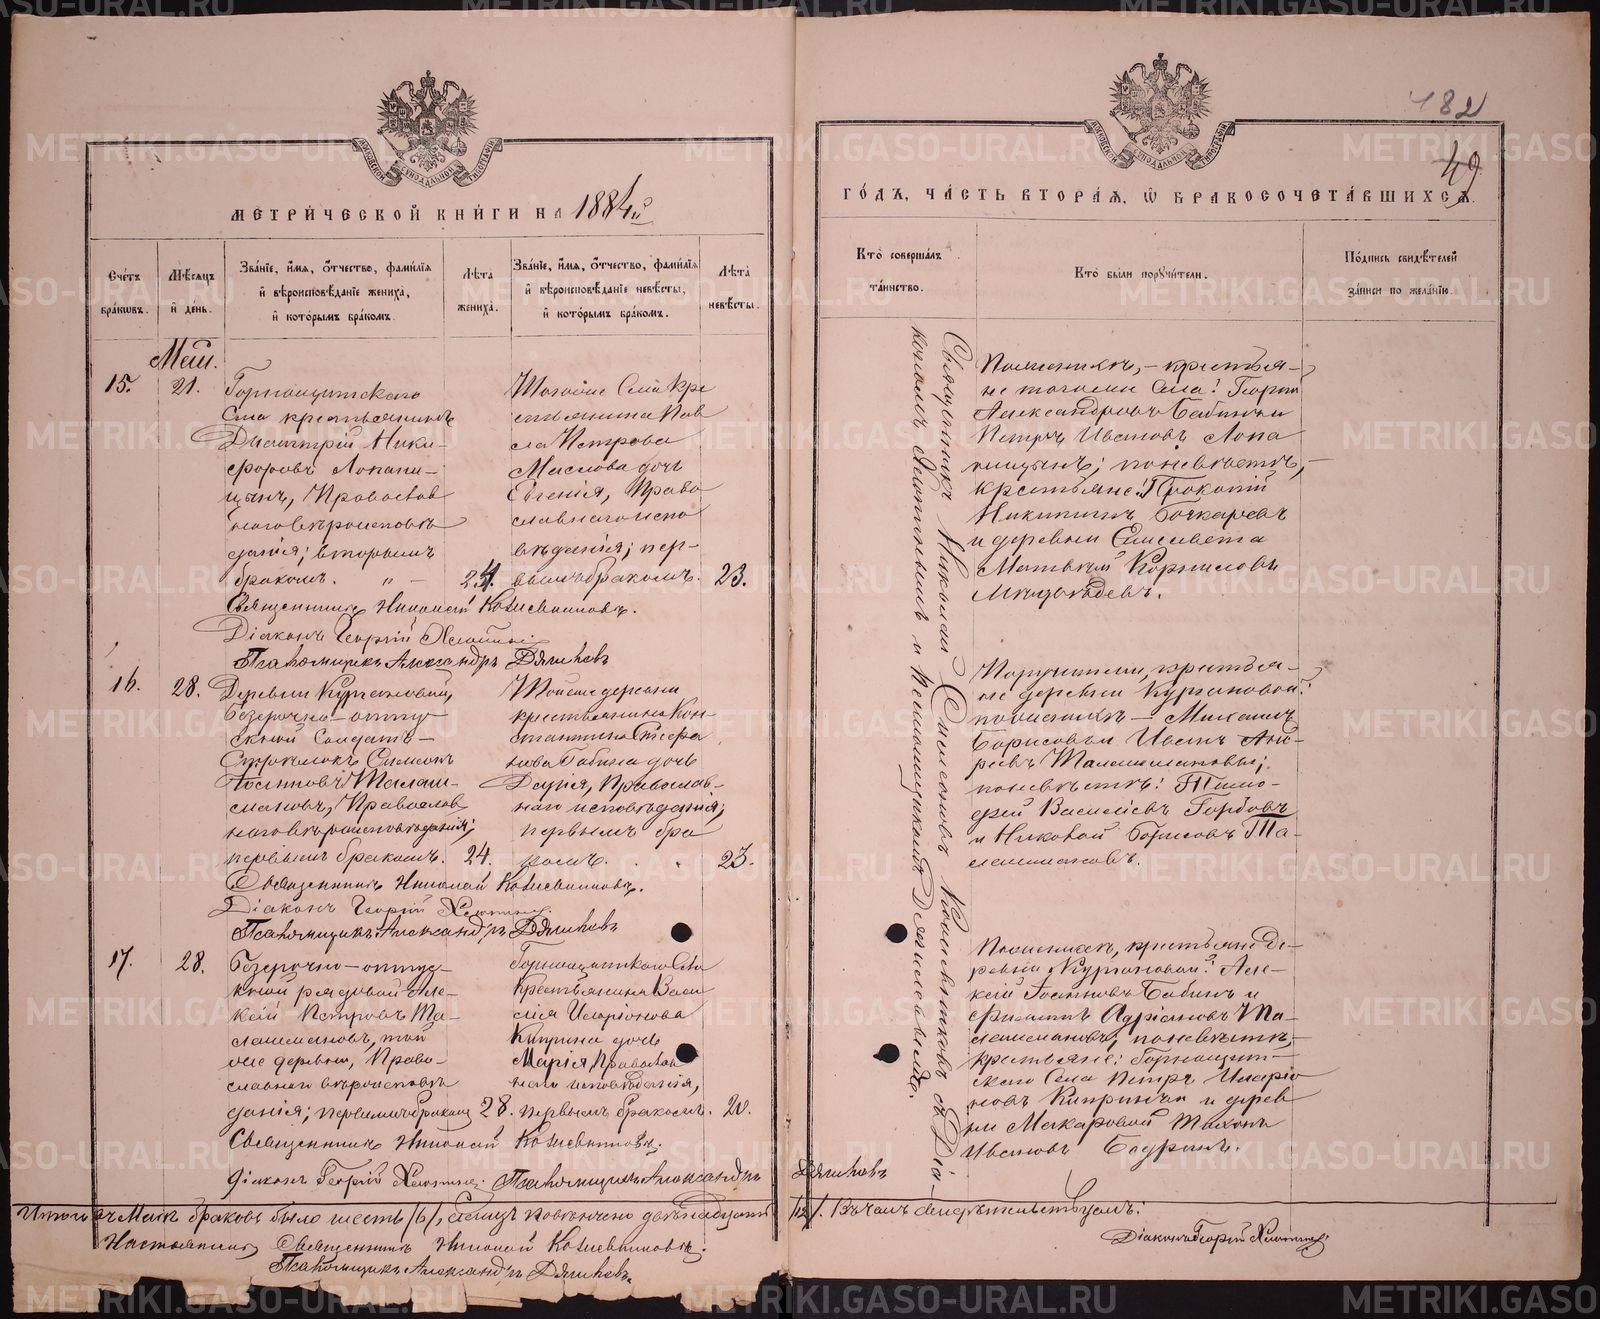 МЕТРИ́ЧЕСКОЙ КНИ́ГИ НА 1884й
Сче́тъ бра́ковъ.
Мѣ́сяцъ и҆ де́нь.
Зва́нїе, и҆́мя, ѻ҆́тчество, фами́лїя и҆ вѣроисповѣ́данїе жениха̀, и҆ кото́рымъ бра́комъ.
Лѣ́та жениха̀.
Зва́нїе, и҆́мя, ѻ҆́тчество, фами́лїя и҆ вѣроисповѣ́данїе невѣ́сты, и҆ кото́рымъ бра́комъ.
Лѣ́та невѣ́сты.
Май.
15.
21.
Горнощитскаго
Села крестьянинъ
Димитрій Ники-
форовъ Лопати-
цынъ, Православ
наго вѣроисповѣ
данія; вторымъ
бракомъ. " —
24.
Тогоже Села Кре
стьянина Пав
ла Петрова
Маслова дочь
Евгенія, Право
славнаго испо
вѣданія; пер-
вымъ бракомъ.
23.
Священникъ Николай
Діаконъ Георгій
Псаломщикъ Александръ Дягилевъ
16.
28.
Деревни Кургановой,
безсрочно-отпу
скной Солдатъ-
Стрѣлокъ Симеонъ
Іосиповъ Талаш-
мановъ, Православ
наго вѣроисповѣданія;
первымъ бракомъ.
24.
Той же деревни
крестьянина Кон-
стантина
Бабина дочь
Дарія, Православ-
наго исповѣданія;
первымъ бра
комъ.
23.
Священникъ Николай
Діаконъ Георгій
Псаломщикъ Александръ Дягилевъ
17.
28.
Безсрочно-отпус-
кной рядовой Але-
ксій Петровъ Та-
лашмановъ, той
же деревни, Право-
славнаго вѣроисповѣ
данія; первымъ бракомъ
28.
Горнощитскаго Села
Крестьянина Васи
лія Иларіонова
Киприна дочь
Марія, Православ
наго исповѣданія,
первымъ бракомъ.
20.
Священникъ Николай
Діаконъ Георгій
Псаломщикъ Александръ
Итого въ Маѣ браковъ было шесть /6/,
Священникъ Николай
Псаломщикъ Александръ Дягилевъ.
182
49
ГО́ДЪ, ЧА́СТЬ ВТОРА́Я, Ѽ БРАКОСОЧЕТА́ВШИХСЯ.
Кто̀ соверша́лъ та́инство.
Кто̀ бы́ли порꙋчи́тели.
По́дпись свидѣ́телей за́писи по жела́нїю.
Священникъ Николай
съ Діа-
кономъ и Псаломщикомъ
По женихѣ, - крестья-
не тогоже Села: Георгій
Александровъ Бабинъ и
Петръ Ивановъ Лопа
тицынъ; по невѣстѣ, -
крестьяне: Прокопій
Никитинъ Бочкаревъ
и деревни Елисавета
Матѳій Корниловъ
Медвѣдевъ.
Поручители, крестья-
не деревни Кургановой:
по женихѣ - Михаилъ
Борисовъ и Иванъ Анд-
реевъ Талашмановы;
по невѣстѣ: Тимо-
фей Василіевъ Горбовъ
и Борисовъ Та-
лашмановъ.
По женихѣ, крестьяне де-
ревни Кургановой: Але-
ксій Іосиповъ Бабинъ и
Филиппъ Адріановъ Та-
лашмановъ, по невѣстѣ, -
крестьяне: Горнощит-
скаго Села Петръ Иларіо
новъ Кипринъ и дерев
ни Макаровой Тихонъ
Ивановъ
Дягилевъ
/12/. Въ чемъ свидѣтельствуемъ:
Діаконъ Георгій
METRIKI.GASO-URAL.RU